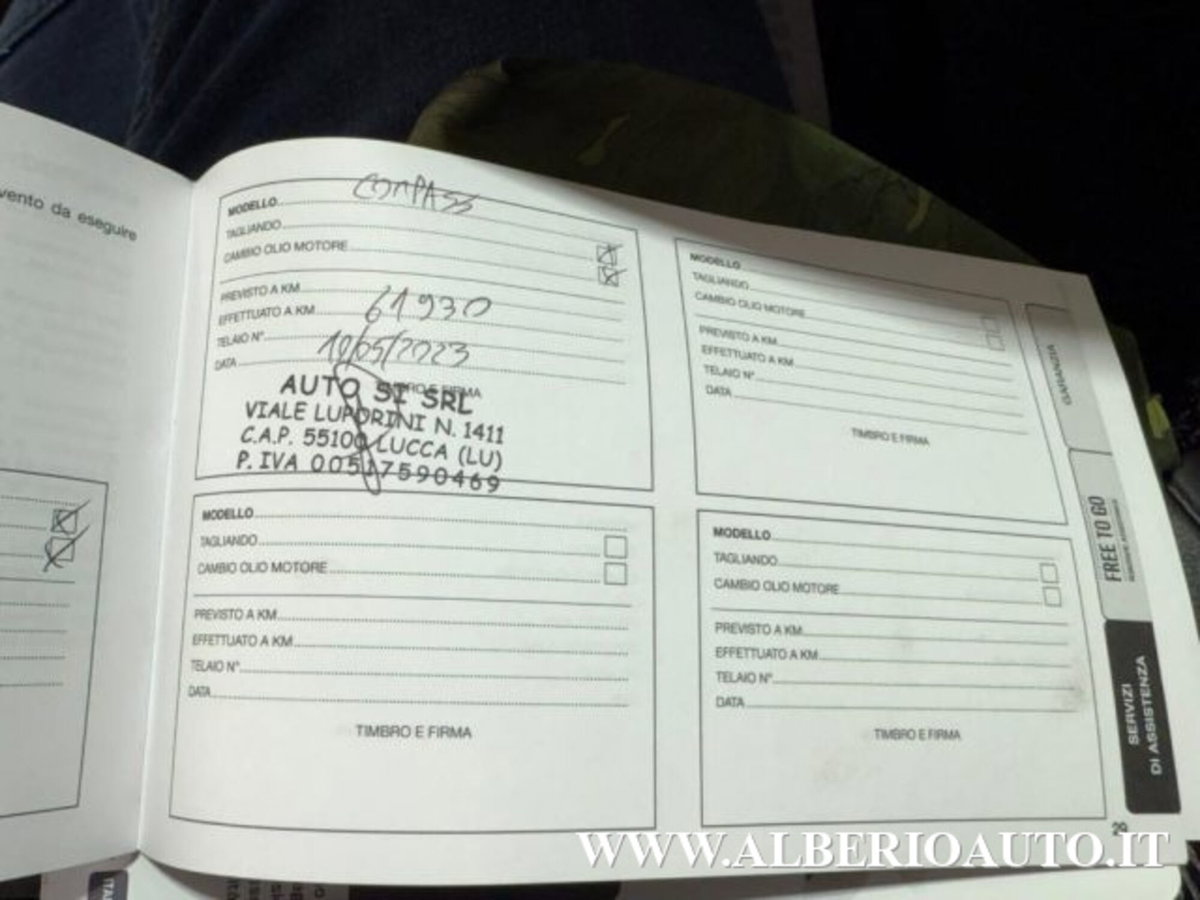 vento da eseguire
MODELLO COMPASS
TAGLIANDO
CAMBIO OLIO MOTORE
PREVISTO A KM
EFFETTUATO A KM 61930
TELAIO N°
DATA 10/05/2023
TIMBRO E FIRMA
AUTO SI SRL
VIALE LUPORINI N. 1411
C.A.P. 55100 LUCCA (LU)
P. IVA 00517590469
MODELLO
TAGLIANDO
CAMBIO OLIO MOTORE
PREVISTO A KM
EFFETTUATO A KM
TELAIO N°
DATA
TIMBRO E FIRMA
MODELLO
TAGLIANDO
CAMBIO OLIO MOTORE
PREVISTO A KM
EFFETTUATO A KM
TELAIO N°
DATA
TIMBRO E FIRMA
MODELLO
TAGLIANDO
CAMBIO OLIO MOTORE
PREVISTO A KM
EFFETTUATO A KM
TELAIO N°
DATA
TIMBRO E FIRMA
GARANZIA
FREE TO GO
SERVIZI
DI ASSISTENZA
29
WWW.ALBERIOAUTO.IT